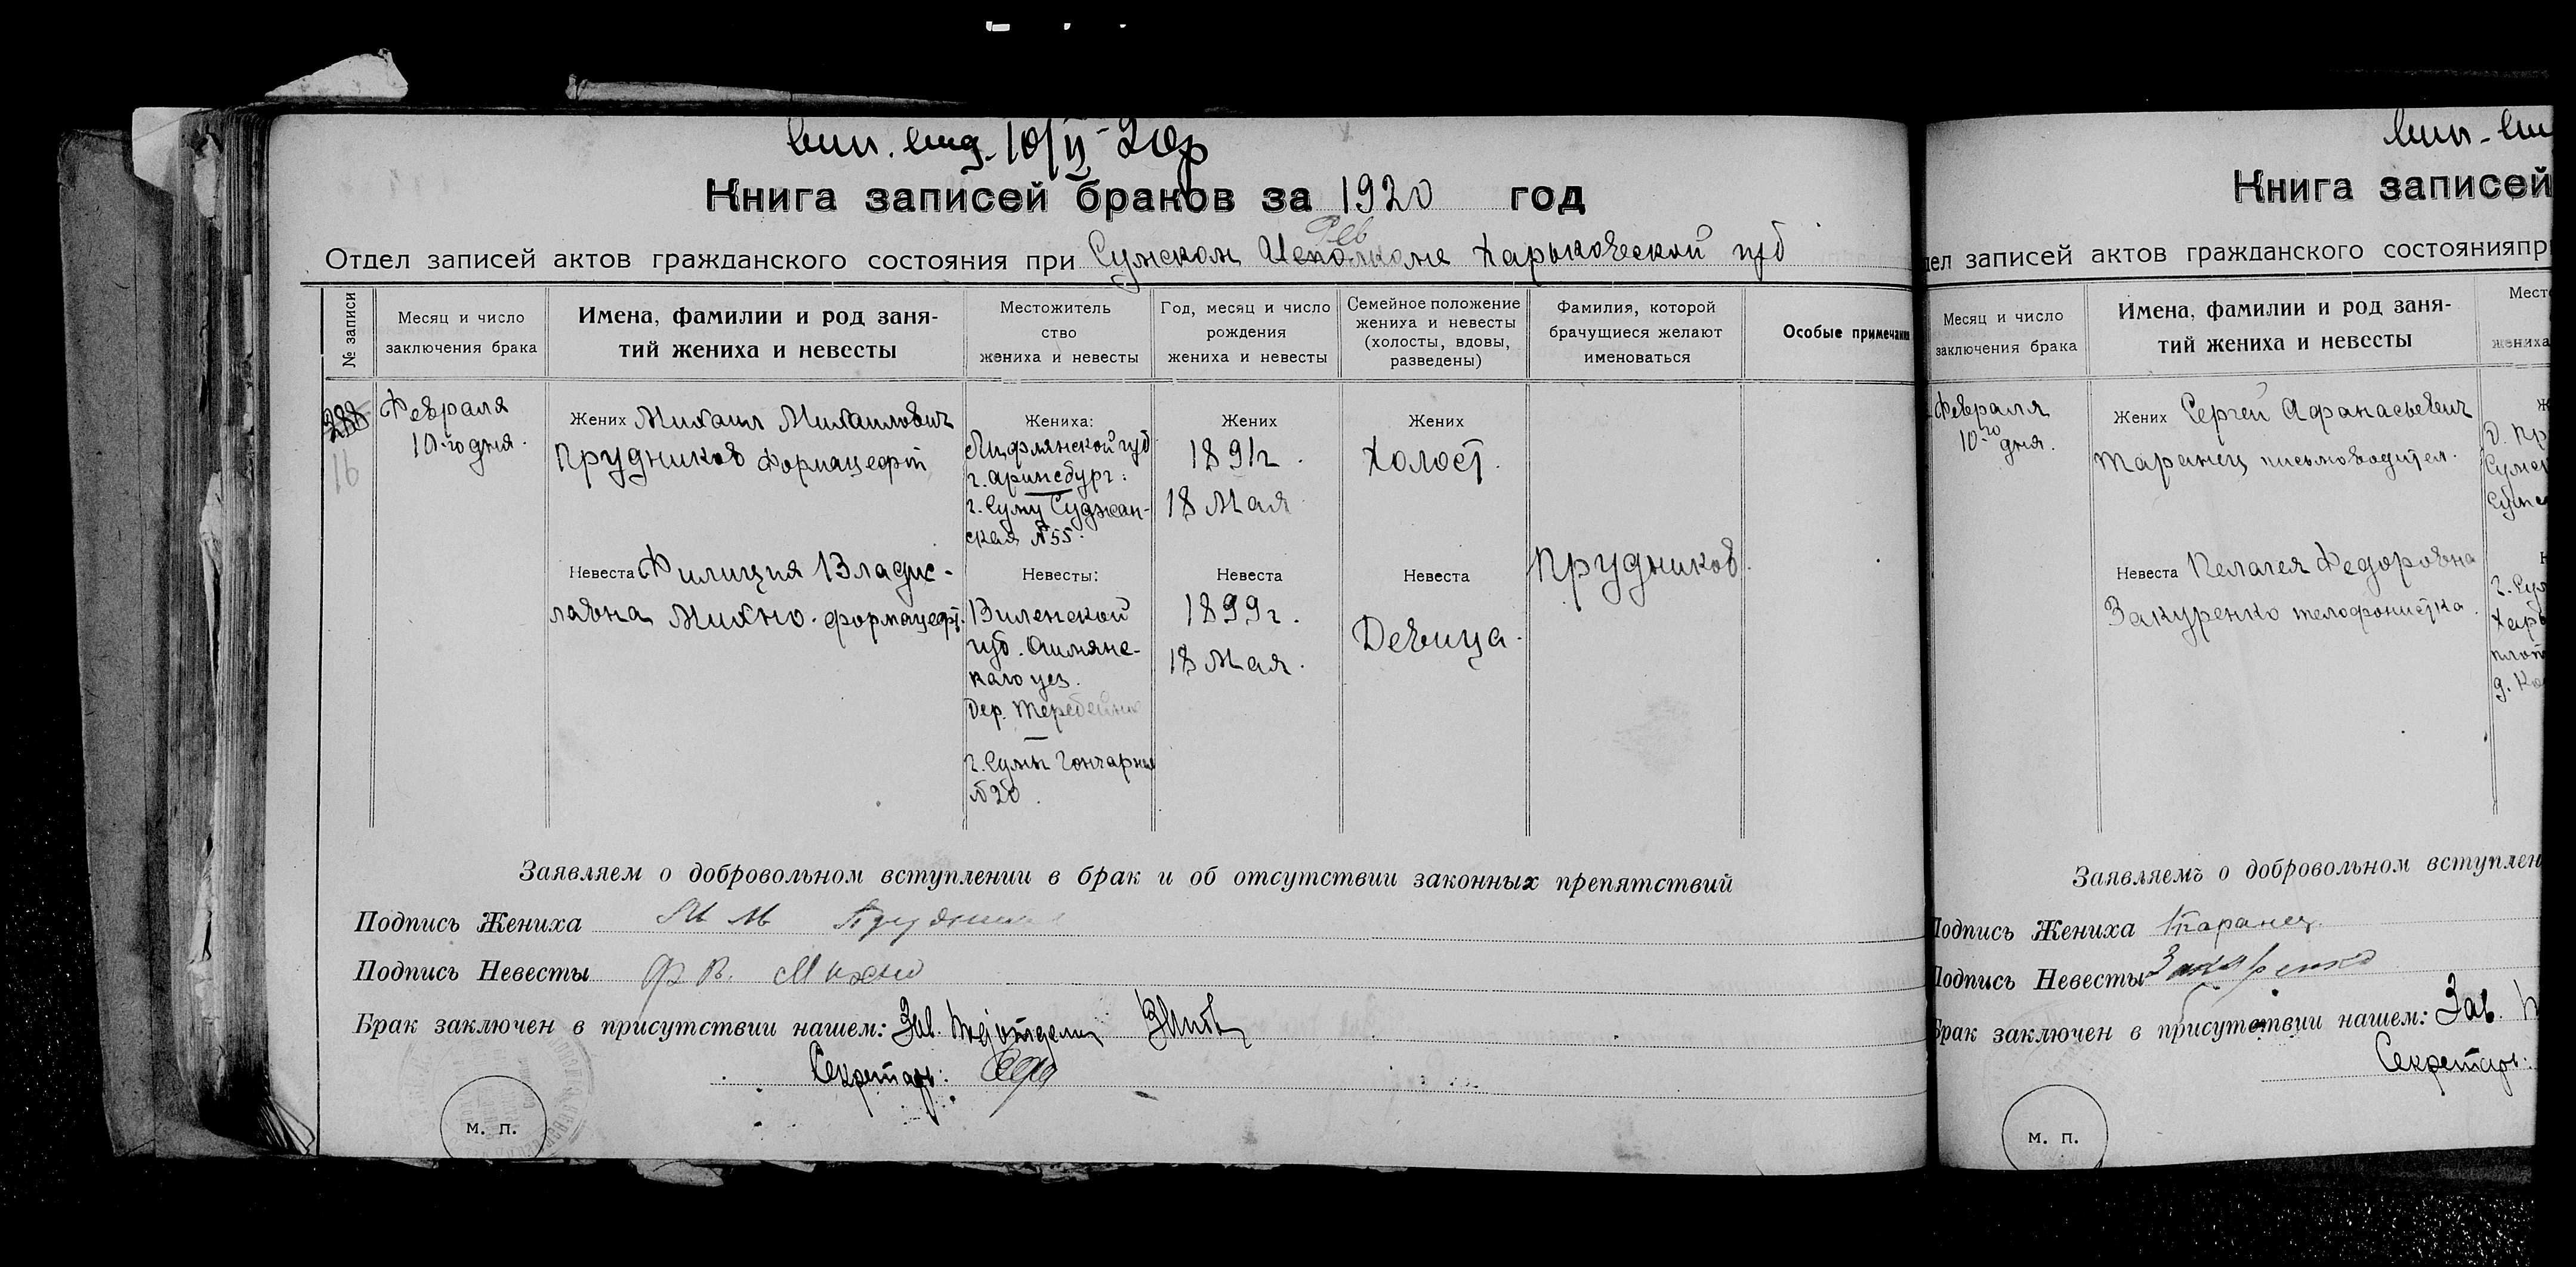 вып. выд. 10/II-20г
Книга записей браков за 1920 год
Рев
Отдел записей актов гражданского состояния при Сумском Исполкоме Харьковской губ
№ записи
Месяц и число
заключения брака
Имена, фамилии и род заня-
тий жениха и невесты
Местожитель
ство
жениха и невесты
Год, месяц и число
рождения
жениха и невесты
Семейное положение
жениха и невесты
(холосты, вдовы,
разведены)
Фамилия, которой
брачущиеся желают
именоваться
Особые примечани
288
16
Февраля
10-го дня.
Жених Михаил Михаилович
Прудников формацефт
Невеста Филиция Владис-
лавна Михно. формацефт.
Жениха:
Лифлянской губ
г. Аринсбург:
г. Сумы Суджан-
ская №55.
Невесты:
Виленской
губ. Ошмянс-
каго уез.
Дер.
г. Сумы Гончарная
№20.
Жених
1891г.
18 Мая
Невеста
1899г.
18 Мая.
Жених
Холост.
Невеста
Девица.
Прудников.
Заявляем о добровольном вступлении в брак и об отсутствии законных препятствий
Подпись Жениха М М Прудник
Подпись Невесты Ф В. Михно
Брак заключен в присутствии нашем: Зав. подотделом
Секретарь:
м. п.
Книга записей
дел записей актов гражданского состоянияпр
Месяц и число
заключения брака
Имена, фамилии и род заня-
тий жениха и невесты
Место
жениха
Февраля
10-го дня.
Жених Сергей Афанасьевич
Таранец письмоводител.
Невеста Пелагея Федоровна
Закуренко телофонистка.
Заявляемъ о добровольном вступлен
Подпись Жениха Таранец.
Подпись Невесты Закуренко
Брак заключен в присутствии нашем: Зав.
Секретарь:
м. п.